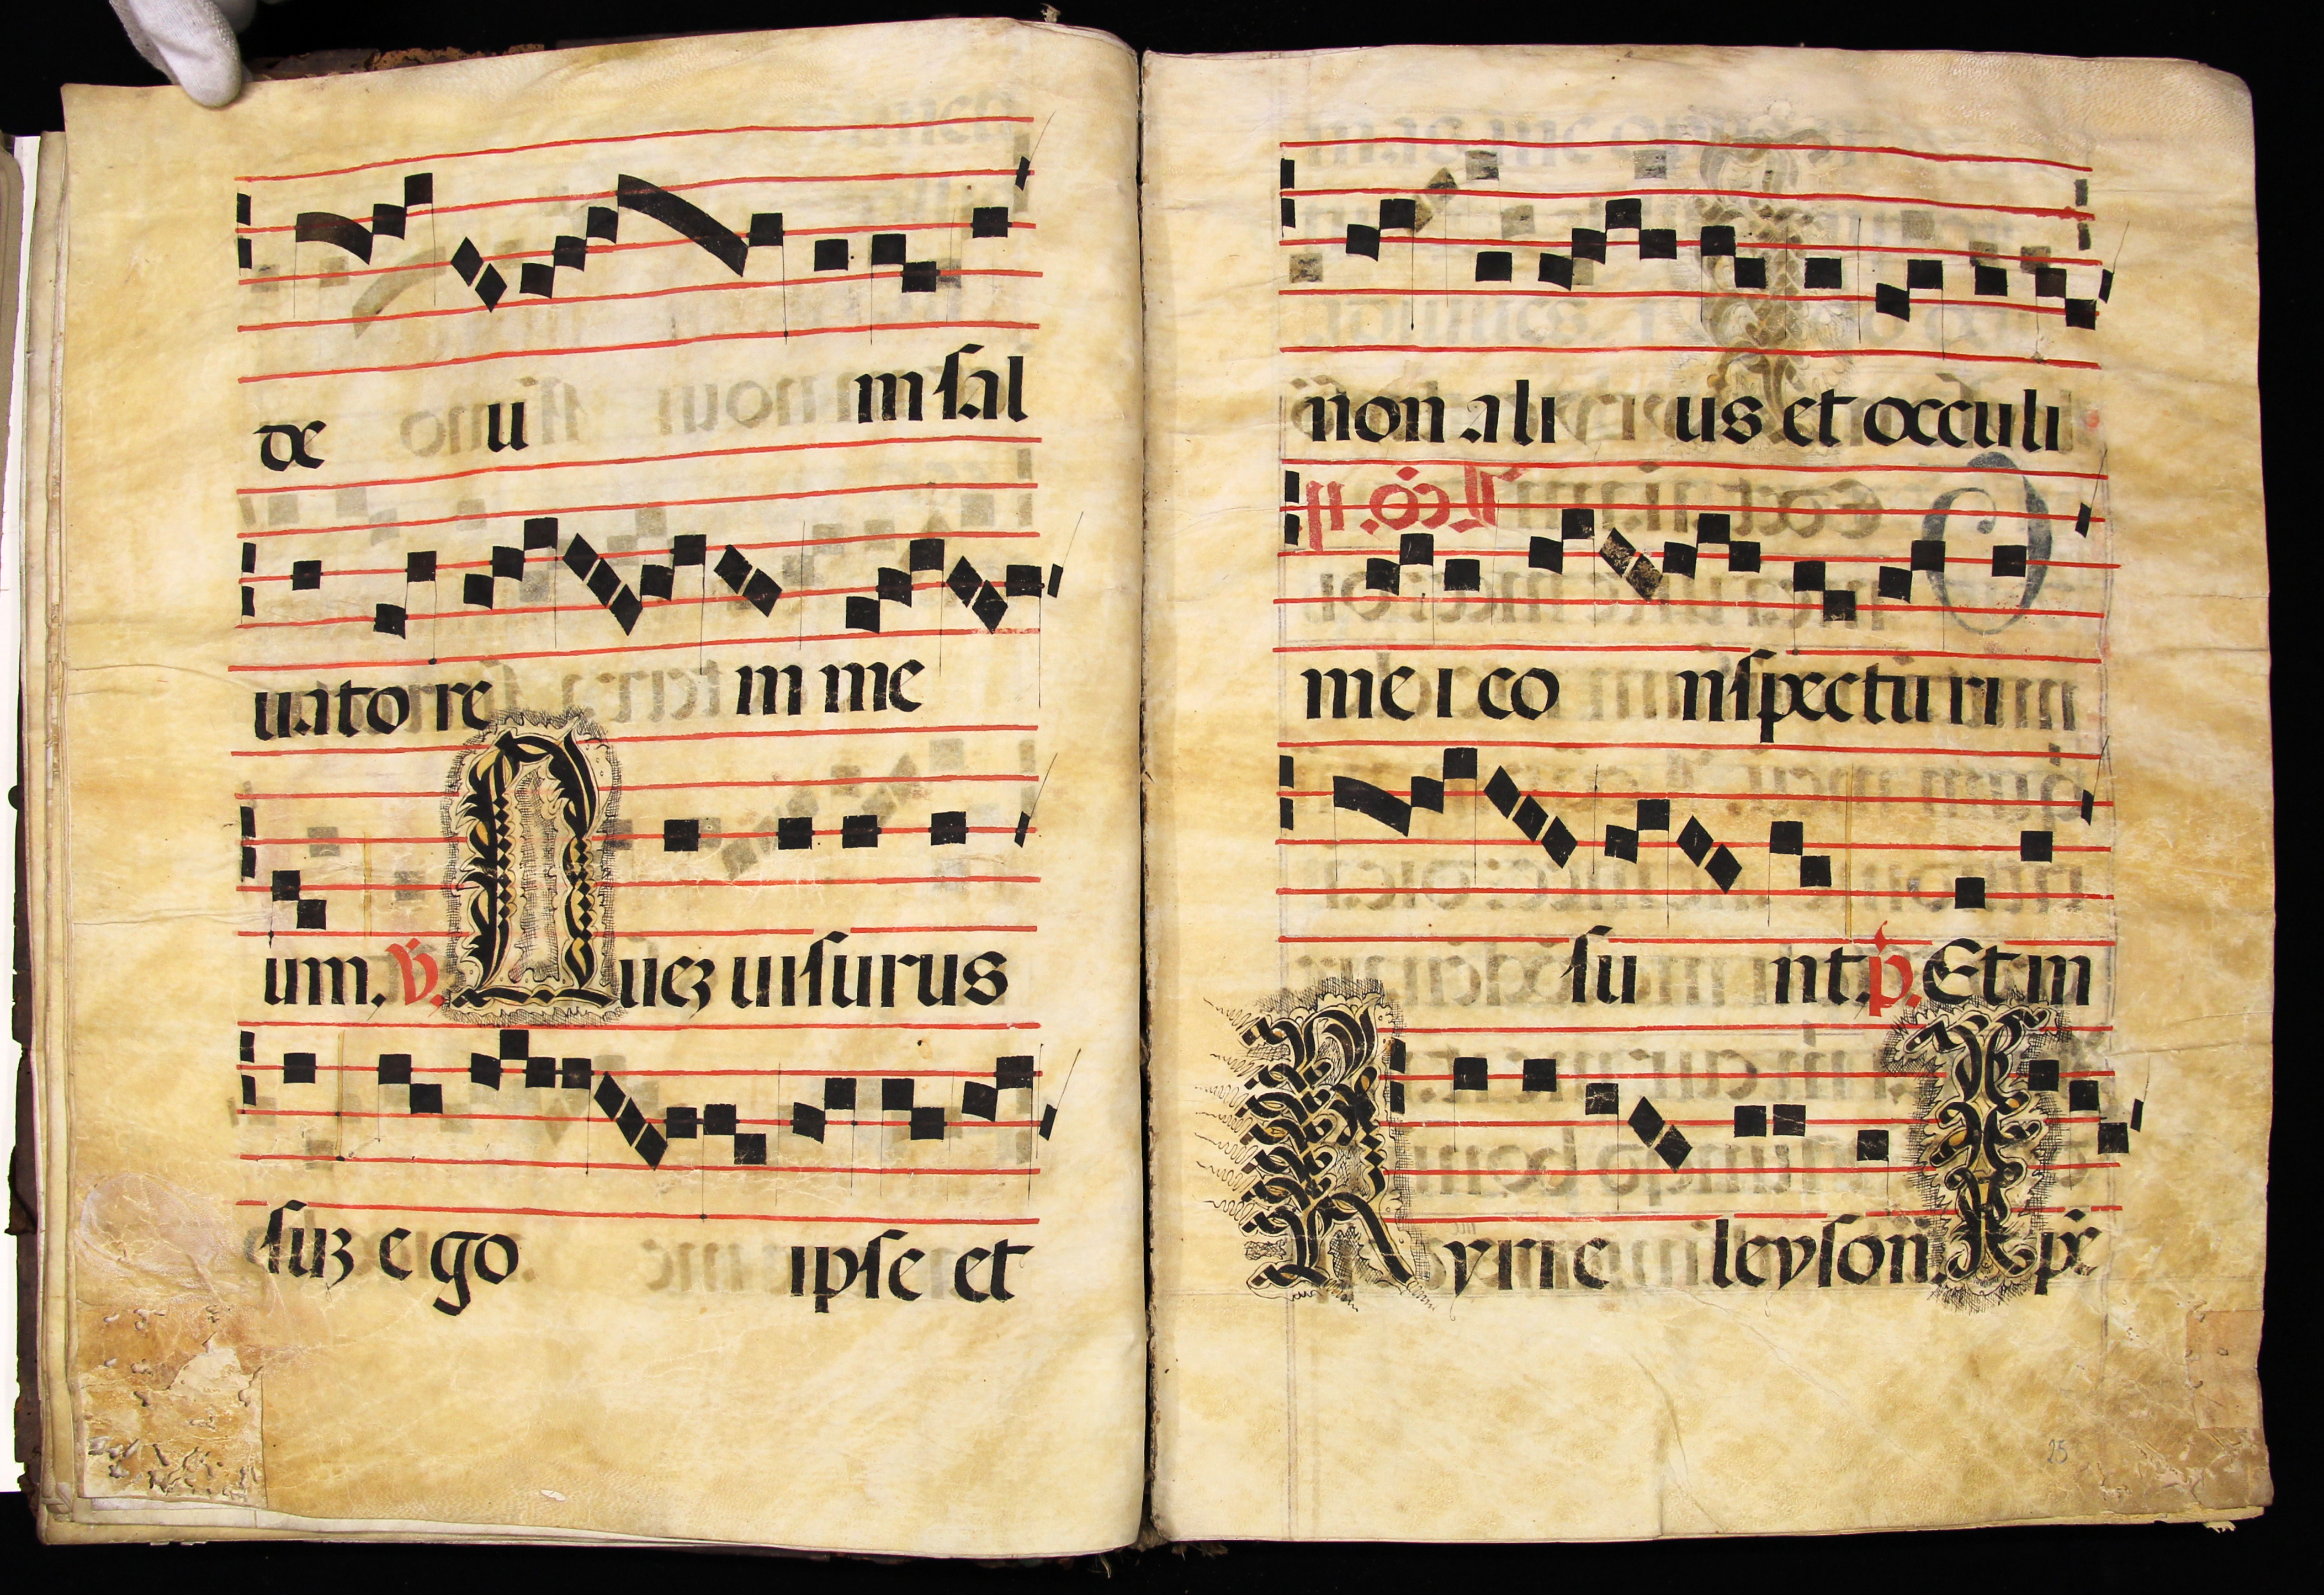 de u m sal
uatorre m me
um. ℣. Quez uisurus
suz ego ipse et
non ali us et occuli
me i co nspectu ri
su nt. p. Et in
Kyrie leyson. Xpe
25